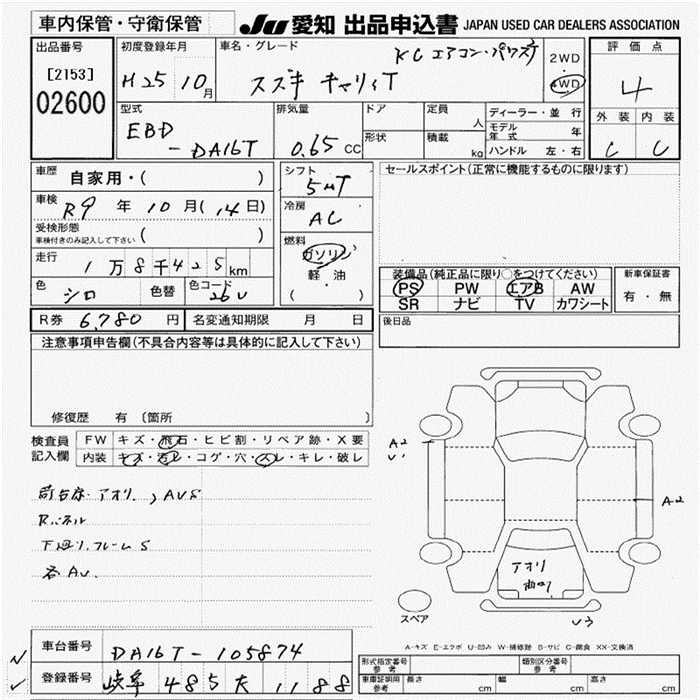 車内保管・守衛保管
JU 愛知 出品申込書 JAPAN USED CAR DEALERS ASSOCIATION
出品番号
[2153]
02600
初度登録年月
H25 10月
車名・グレード
KC エアコン・パワステ
スズキ キャリイT
2WD
・
4WD
評価点
4
外装 内装
C C
型式
EBD
-DA16T
排気量
0.65 CC
ドア
形状
定員
人
積載
kg
ディーラー・並行
モデル年式 年
ハンドル 左・右
車歴 自家用・( )
車検 R9 年 10 月 ( 14 日)
受検形態
車検付きのみ記入して下さい ( )
走行 1万8千425km
色 シロ 色替 色コード 26U
シフト
5MT
冷房
AC
燃料
ガソリン
軽油
( )
セールスポイント(正常に機能するものに限ります)
装備品(純正品に限り○をつけてください)
PS PW エアB AW
SR ナビ TV カワシート
新車保証書
有・無
R券 6,780 円 名変通知期限 月 日
後日品
注意事項申告欄(不具合内容等は具体的に記入して下さい)
修復歴 有 〔箇所
検査員
記入欄
FW キズ・飛石・ヒビ割・リペア跡・X要
内装 キズ・汚レ・コゲ・穴・スレ・キレ・破レ
Rパネル
下廻り.フレームS
各AU.
A2
U1
A2
アオリ
曲り
U3
スペア
A-キズ E-エクボ U-凹み W-補修跡 S-サビ C-腐食 XX-交換済
車台番号 DA16T-105874
登録番号 岐阜 485 た 1188
形式指定番号
参考
類別区分番号
参考
車庫証明用
参考
長さ cm 幅 cm 高さ cm